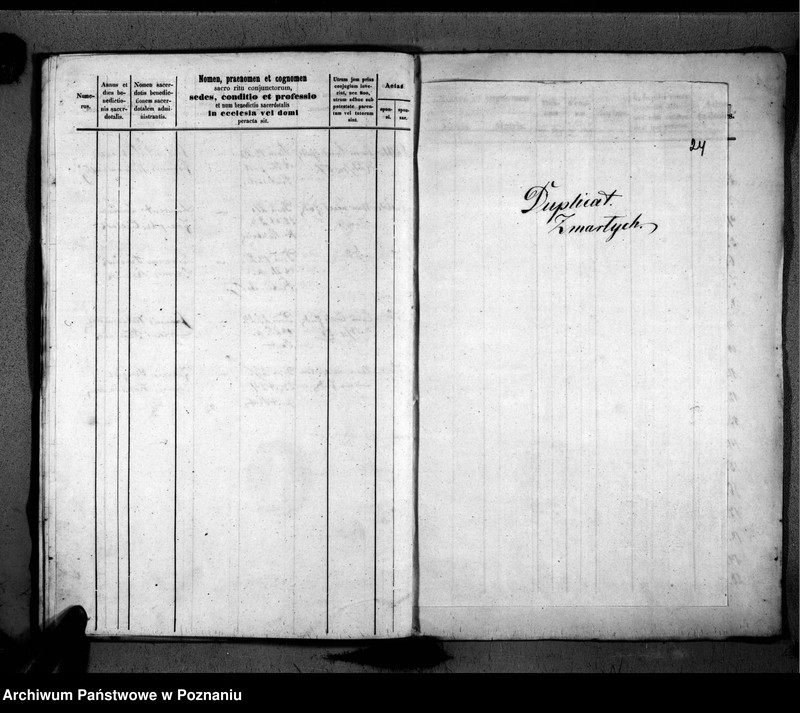 Nume-
rus.
Annus et
dies be-
nedictio-
nis sacer-
dotalis.
Nomen sacer-
dotis benedic-
tionem sacer-
dotalem admi-
nistrantis.
Nomen, praenomen et cognomen
sacro ritu conjunctorum,
sedes, conditio et professio
et num benedictio sacerdotalis
in ecclesia vel domi
peracta sit.
Utrum jam prius
conjugium inie-
rint, nec non,
utrum adhuc sub
potestate paren-
tum vel tutorum
sint.
Aetas
spon-
si.
spon-
sae.
24
Duplicat.
Zmartych.
Archiwum Państwowe w Poznaniu